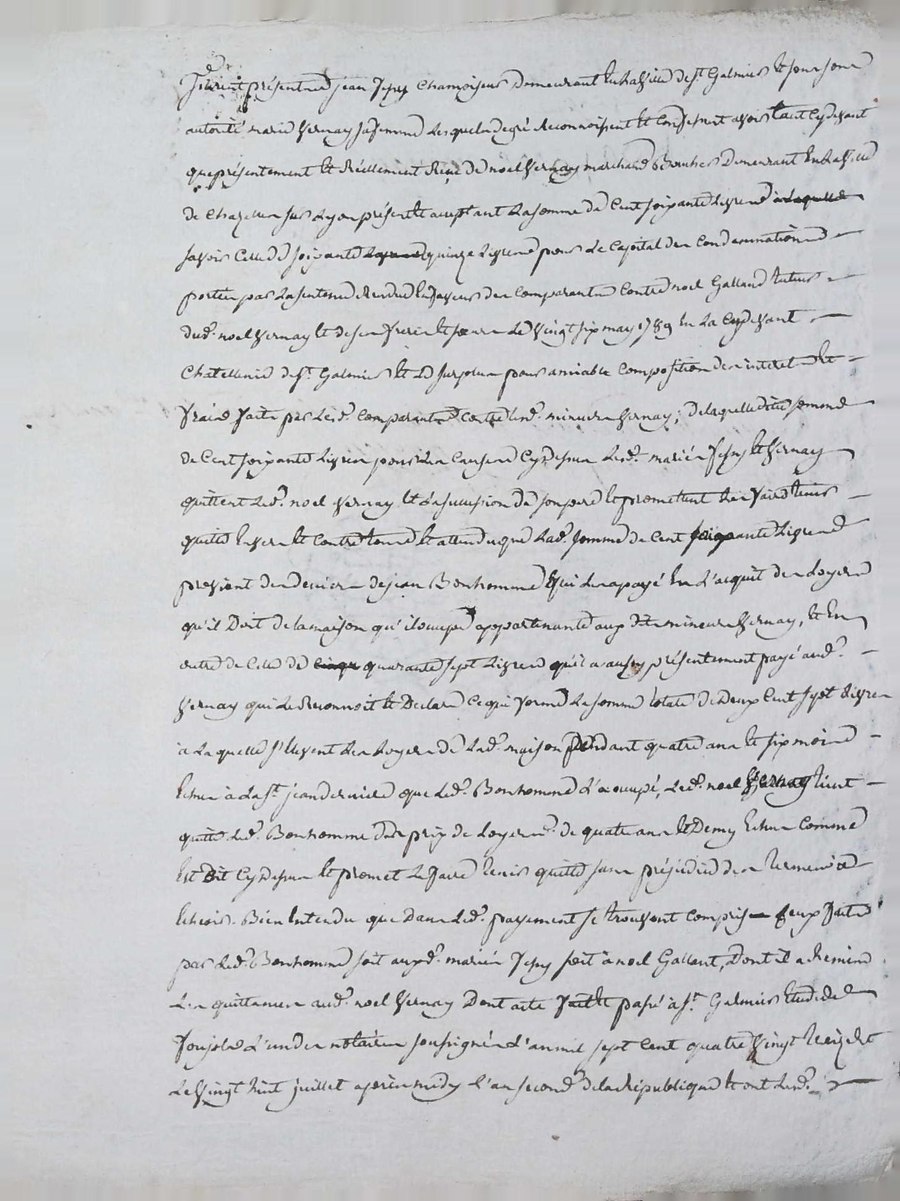 furent présents jean Jesny Chamoiseur demeurant en la ville de st Galmier et sous son
autorité marie Vernay sa femme Lesquels de gré reconnoissent et confessent avoir tant cy devant
que présentement et réellement reçu de noel Vernay marchand demeurant en la ville
de Chazelles sur Lyon présent et acceptant La somme de Cent soixante Livres a laquelle
savoir Celle de soixante quinze Livres pour Le Capital des Condamnations
portées par La sentence rendue en faveur des Comparants Contre noel Galland tuteur
dud. noel Vernay et de ses frere et sœurs Le vingt six may 1789 en La Cy devant
Chatellenie de st. Galmier et Le surplus pour amiable Composition des interets et
fraix faits par Lesd. Comparants Contre Lesd. mineurs Vernay; de laquelle dite somme
de Cent soixante Livres pour Les Causes Cy dessus Lesd. mariés Jesny et Vernay
quittent Led. noel Vernay et La succession de son pere et promettent Les faire tenir
quittes Envers et Contre tous et attendu que Lad. somme de Cent soixante Livres
provient des deniers de jean Bonhomme qui Les a payé En L'acquit des Loyers
qu'il Doit de La maison qu'il occupe appartenante aux dits mineurs Vernay, et En
outre de Celle de cinqu quarante sept Livres qu'il a aussy présentement payé aud.
Vernay qui Le Reconnoit et Declare Ce qui forme La somme totale de Deux Cent sept Livres
à La quelle s'Elevent Les Loyers de Lad. maison pendant quatre ans et six mois
Echus à La st. jean derniere que Led. Bonhomme L'a occupé, Led. noel Vernay tient
quitte Led. Bonhomme du prix de Loyers de quatre ans et Demy Echus Comme
Est Dit Cy Dessus et promet Le faire tenir quitte sans préjudice des termes à
Echeoir. Bien Entendu que dans Led. payement se trouvent Compris Ceux faits
par Led. Bonhomme soit auxd. mariés Jesny soit à noel Galland, Dont il a remis
Les quittances aud. noel Vernay Dont acte fait et passé à st. Galmier Etude de
L'un des notaires soussignés L'an mil sept Cent quatre Vingt treize Et
Le Vingt huit juillet après midy L'an second de la République et ont Lesd.